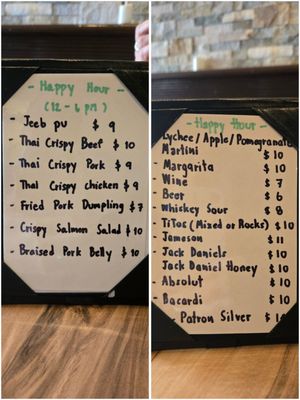 - Happy Hour -
(12 - 6 pm)
- Jeeb pu $ 9
- Thai Crispy Beef $ 10
- Thai Crispy Pork $ 9
- Thai Crispy chicken $ 9
- Fried Pork Dumpling $ 7
- Crispy Salmon Salad $ 10
- Braised Pork Belly $ 10
- Happy Hour -
Lychee / Apple / Pomegranate
Martini $ 10
- Margarita $ 10
- Wine $ 7
- Beer $ 6
- Whiskey Sour $ 8
- Titos (Mixed or Rocks) $ 10
- Jameson $ 11
- Jack Daniels $ 10
- Jack Daniel Honey $ 10
- Absolut $ 10
- Bacardi $ 10
- Patron Silver $